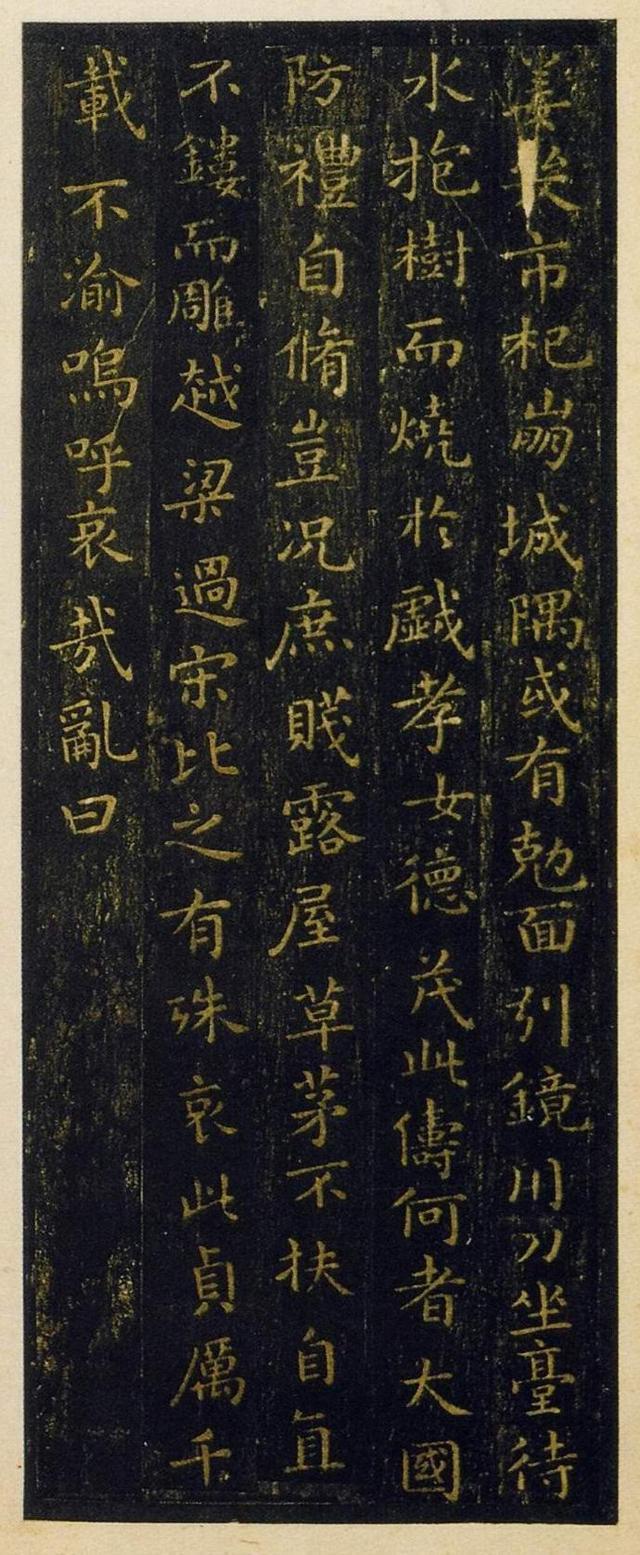 姜市杞崩城隅或有尅面引鏡川刀坐臺待
水抱樹而燒於戲孝女德茂此儔何者大國
防禮自脩豈況庶賤露屋草茅不扶自直
不鏤而雕越梁過宋比之有殊哀此貞厲千
載不渝嗚呼哀哉亂曰